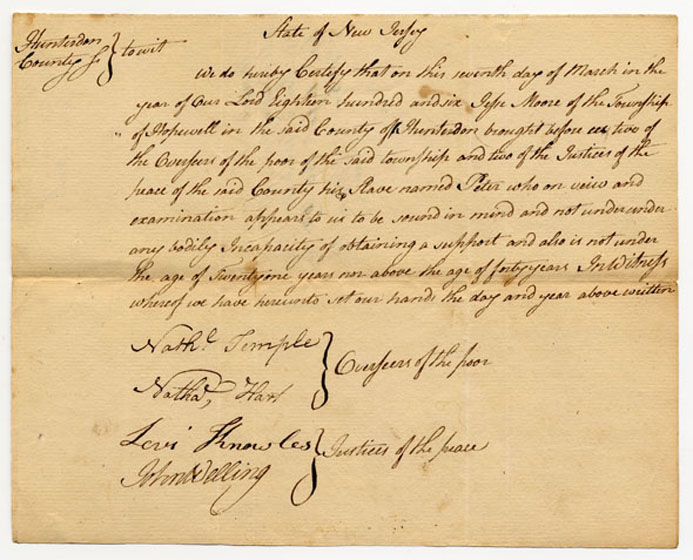 State of New Jersey
Hunterdon
County Ss } towit
We do hereby Certify that on this seventh day of March in the
year of Our Lord Eighteen hundred and six Jesse Moore of the Township
of Hopewell in the said County of Hunterdon brought before us two of
the Overseers of the poor of the said township and two of the Justices of the
peace of the said County his Slave named Peter who on view and
examination appears to us to be sound in mind and not under under
any bodily Incapacity of obtaining a support and also is not under
the age of Twentyone years nor above the age of forty years In Witness
whereof we have hereunto set our hands the day and year above written
Nathl. Temple
} Overseers of the poor
Nathal. Hart
Levi Knowles
} Justices of the peace
John Welling